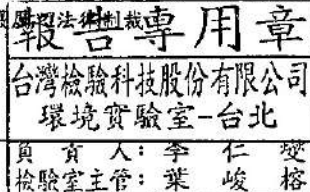 法律制裁
報告專用章
台灣檢驗科技股份有限公司
環境實驗室-台北
負責人：李仁燮
檢驗室主管：葉峻榕